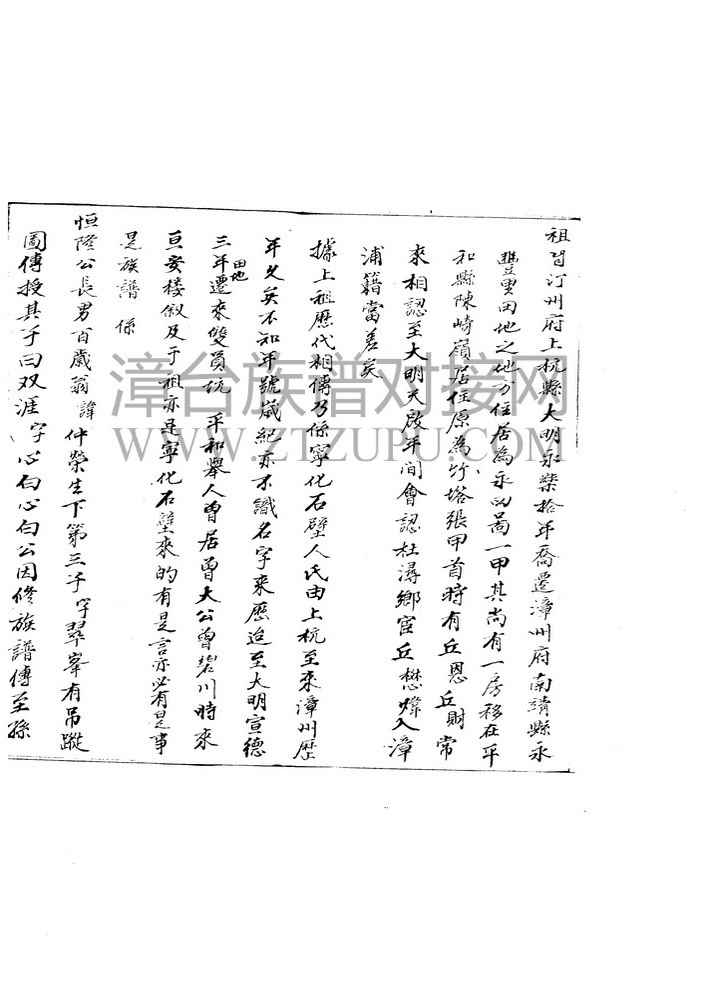 祖自汀州府上杭縣大明永樂拾年喬遷漳州府南靖縣永
豐里田地之地方住居為永 圖一甲其尚有一房移在平
和縣陳崎嶺居住原為竹塔張甲首時有丘恩丘財常
來相認至大明天啟年間會認杜潯鄉宦丘懋煒入漳
浦籍當差矣
據上祖歷代相傳乃係寧化石壁人氏由上杭至來漳州歷
年久矣不知年號歲紀亦不識名字來歷迨至大明宣德
三年遷來雙員坑田地平和舉人曾居曾大公曾碧川時來
亘安樓叙及于祖亦是寧化石壁來的有是言亦必有是事
是族譜係
恒隆公長男百歲翁諱仲榮生下第三子字翠峯有吊蹤
圖傳授其子曰双涯字心白心白公因修族譜傳至孫
漳台族谱对接网
WWW.ZTZUPU.COM